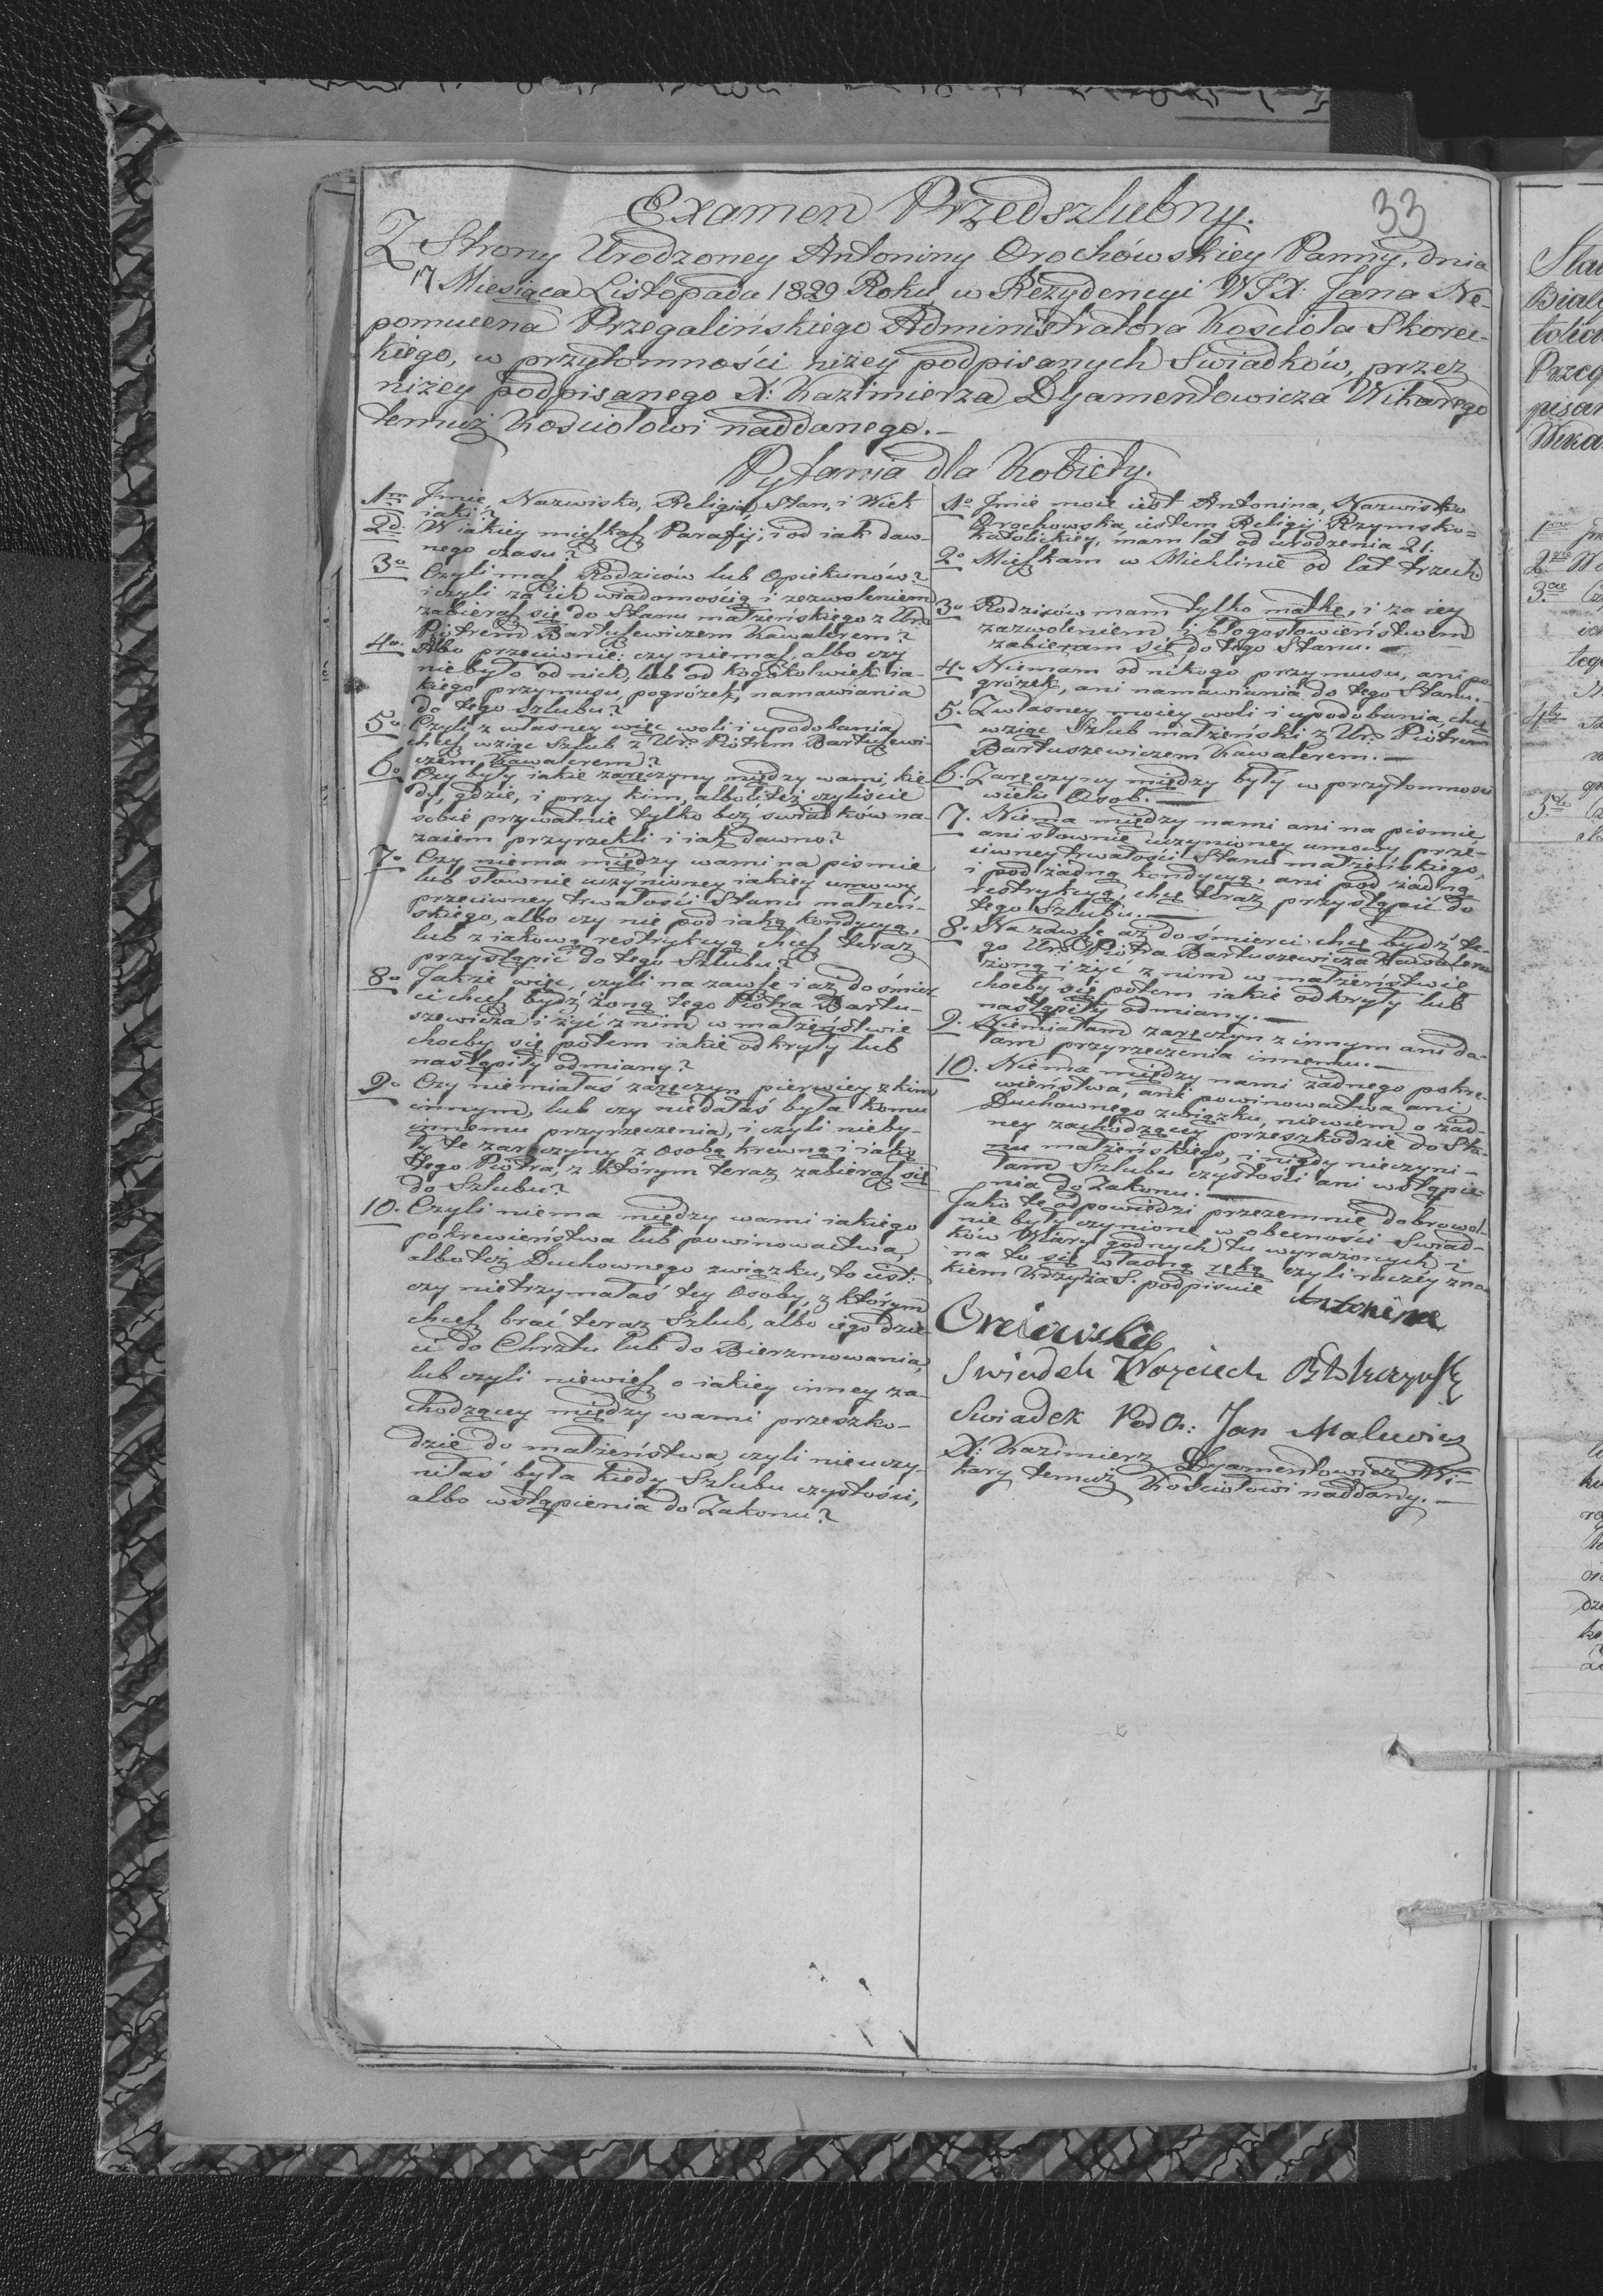 33
Examen Przedszlubny.
Z Strony Urodzoney Antoniny Orochówskiey Panny, dnia
17 Miesiąca Listopada 1829 Roku w Rezydencyi WJX. Jana Ne-
pomucena Przegalińskiego Administratora Kościoła Skorec-
kiego, w przytomności niżey podpisanych Swiadków, przez
niżey podpisanego X: Kazimierza Dyamentowicza Wikarego
temuż Kościołowi naddanego.-
Pytania dla Kobiety.
1mo Jmie, Nazwisko, Religia, Stan, i Wiek
iaki?
2do. W iakiey mięszkasz Parafij, i od iak daw-
nego czasu?
3o Czyli masz Rodziców lub Opiekunów?
i czyli za ich wiadomością i zezwoleniem
zabierasz się do Stanu małżeńskiego z Ur.
Piotrem Bartuszewiczem Kawalerem?
4o. Albo przeciwnie; czy niemasz, albo czy
niebyło od nich, lub od kogóżkolwiek ia-
kiego przymusu, pogróżek, namawiania
do tego szlubu?
5o. Czyli z własney więc woli i upodobania
chcesz wziąc Szlub z Ur. Piotrem Bartuszewi-
czem Kawalerem?
6o Czy były iakie zaręczyny między wami, kie-
dy, gdzie, i przy kim, albo też czyliście
sobie przywatnie tylko bez swiadków na-
zaiem przyrzekli i iak dawno?
7o Czy niema między wami na pismie
lub słownie uczynioney iakiey umowy
przeciwney trwałości Stanu małżeń-
skiego, albo czy nie pod iaką kondycyą,
lub z iakową restrykcyą chcesz teraz
przystąpić do tego Szlubu?
8o Jakże więc, czyli na zawsze i aż do śmier-
ci chcesz bydź żoną tego Piotra Bartu-
szewicza i żyć z nim w małżeństwie
choćby się potem iakie odkryły lub
nastąpiły odmiany?
9o Czy niemiałaś zaręczyn pierwiey z kim
innym, lub czy niedałaś była komu
innemu przyrzeczenia, i czyli nieby-
ły te zaręczyny z osobą krewną iaką
tego Piotra, z którym teraz zabierasz się
do Szlubu?
10. Czyli niema między wami iakiego
pokrewieństwa lub powinowactwa,
albo też Duchownego związku, to iest:
czy nietrzymałaś tey Osoby, z którym
chcesz brać teraz Szlub, albo iego dzie-
ci do Chrztu lub do Bierzmowania,
lub czyli niewiesz o iakiey inney za-
chodzącey między wami przeszko-
dzie do małżeństwa, czyli nieuczy-
niłaś była kiedy Szlubu czystości,
albo wstąpienia do Zakonu?
1o Jmie moie iest Antonina, Nazwisko
Orochowska iestem Religij Rzymsko=
katolickiey, mam lat od urodzenia 21.
2o Mieszkam w Michlinie od lat trzech
3o Rodziców mam tylko matkę, i za iey
zazwoleniem i błogosłowieństwem
zabieram się do tego Stanu.-
4. Niemam od nikogo przymusu, ani po-
gróżek, ani namawiania do tego Stanu.
5. Z własney moiey woli i upodobania chcę
wziąc Szlub małżeński z Ur. Piotrem
Bartuszewiczem Kawalerem.-
6. Zaręczyny między były w przytomnosci
wielu Osob.-
7. Niema między nami ani na pismie
ani słownie uczynioney umowy prze-
ciwney trwałości Stanu małżeńskiego,
i pod żadną kondycyą, ani pod żadną
restrykcyą chcę teraz przystąpić do
tego Szlubu.-
8. Na zawsze aż do śmierci chcę bydź te-
go Ur. Piotra Bartuszewicza Kawalera
żoną i żyć z nim w małżeństwie
choćby się potem iakie odkryły lub
nastąpiły odmiany.-
9. Niemiałam zaręczyn z innym ani da-
łam przyrzeczenia innemu.-
10. Niema między nami żadnego pokre-
wieństwa, ani powinowactwa ani
Duchownego związku, niewiem o żad-
ney zachodzącey przeszkodzie do Sta-
nu małżeńskiego, i nigdy nieczyni-
łam Szlubu czystości ani wstąpie-
nia do Zakonu.-
Jako te odpowiedzi przezemnie dobrowol-
nie były czynione w obecności Swiad-
ków Wiary godnych tu wyrażonych i
na to się własną ręką czyli raczey zna-
kiem Krzyża S. podpisuie Antonina
Swiadek Woyciech
Swiadek Jan Malewicz
X: Kazimierz Dyamentowicz Wi-
kary temuż Kościołowi naddany.-